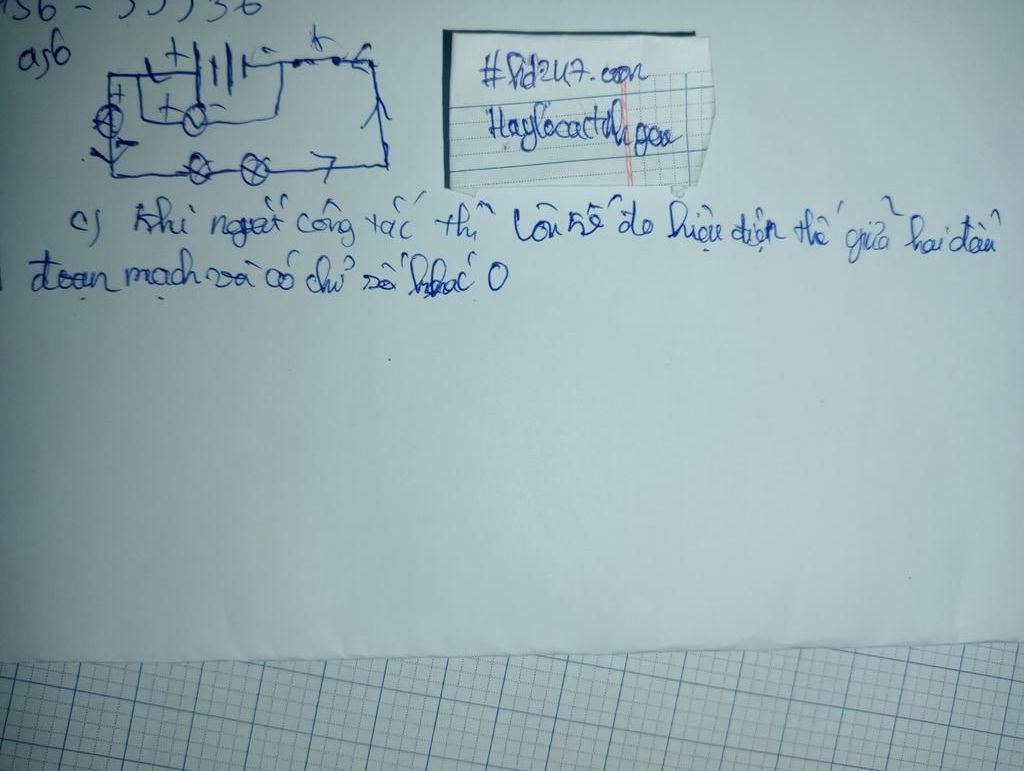 a,b
K
#hd247.com
Haylocactchgea
c) Khi ngắt công tắc thì Vôn kế đo hiệu điện thế giữa hai đầu
đoạn mạch và có chỉ số khác 0